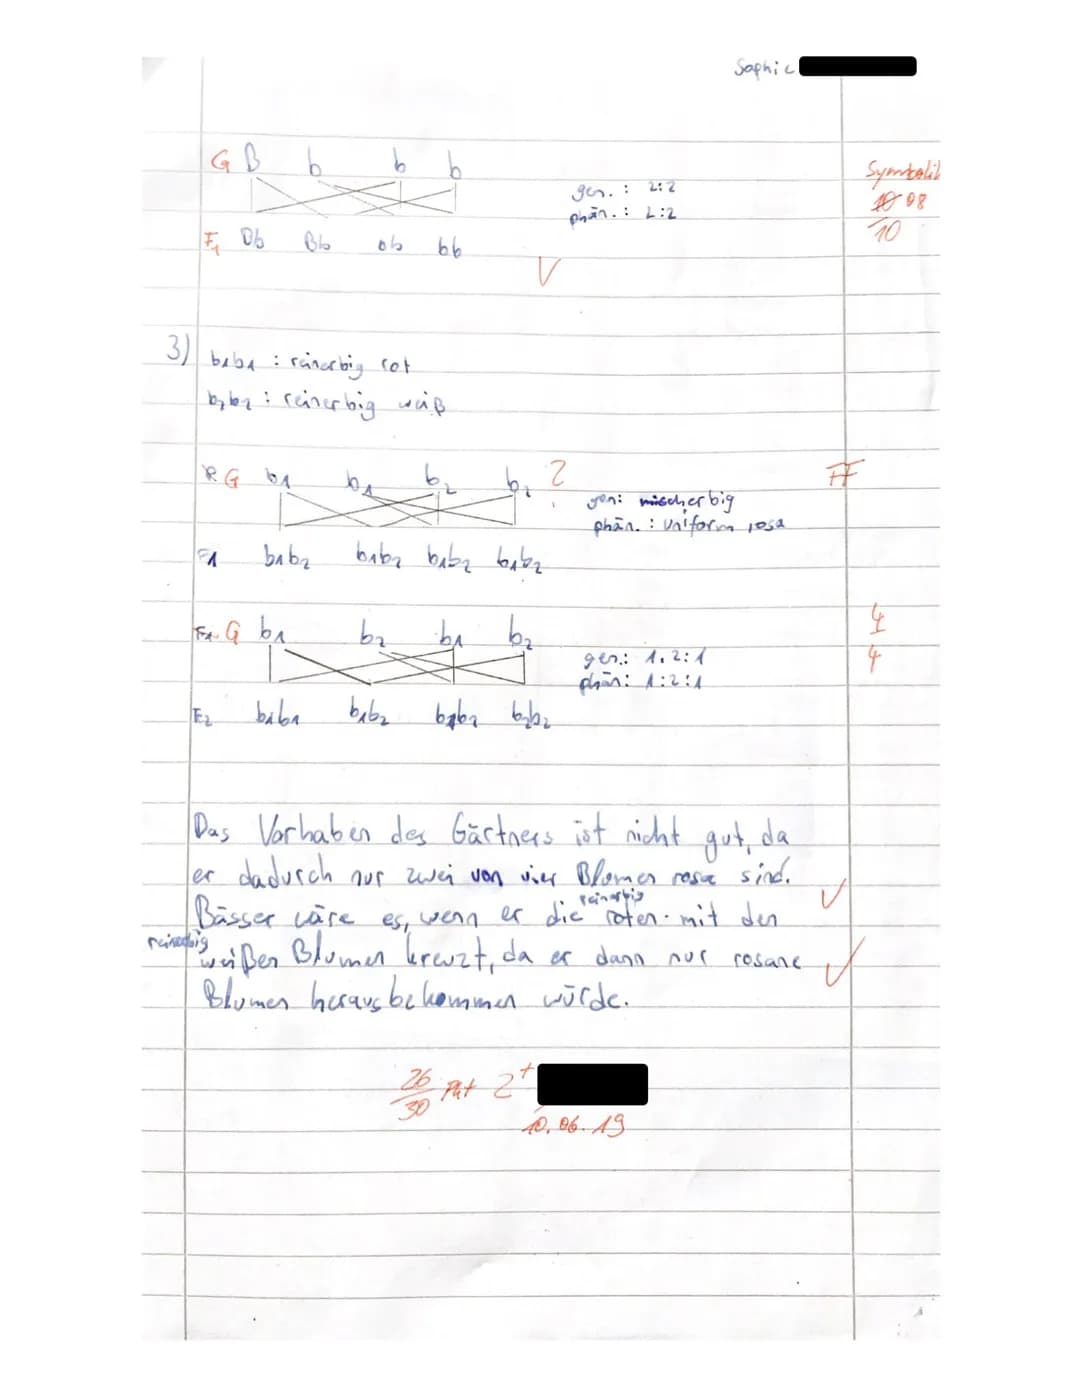 Sophie
G B b b b
gen. : 2:2
phän. : 2:2
Symbolik
08
10
F1 Bb Bb bb bb
V
3) b1b1 : reinerbig rot
b2b2 : reinerbig weiß
G b1 b1 b2 b2 ?
FF
gen: mischerbig
phän. : uniform rosa
F1 b1b2 b1b2 b1b2 b1b2
F1 G b1 b2 b1 b2
4
4
gen.: 1:2:1
phän: 1:2:1
F2 b1b1 b1b2 b1b2 b2b2
Das Vorhaben des Gärtners ist nicht gut, da
er dadurch nur zwei von vier Blumen rosa sind.
Bässer wäre es, wenn er die reinerbig roten mit den
reinerbig weißen Blumen kreuzt, da er dann nur rosane
Blumen herausbekommen würde.
26
30 Pkt 2+
10.06.19